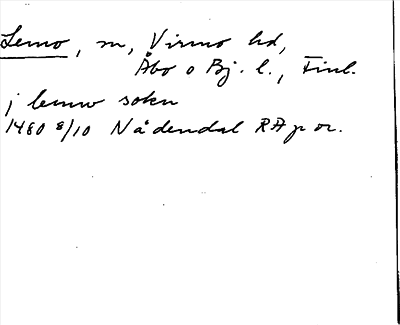 Lemo, sn, Virmo hd,
Åbo o Bj. l., Finl.
j lemw sokn
1480 8/10 Nådendal RA p or.